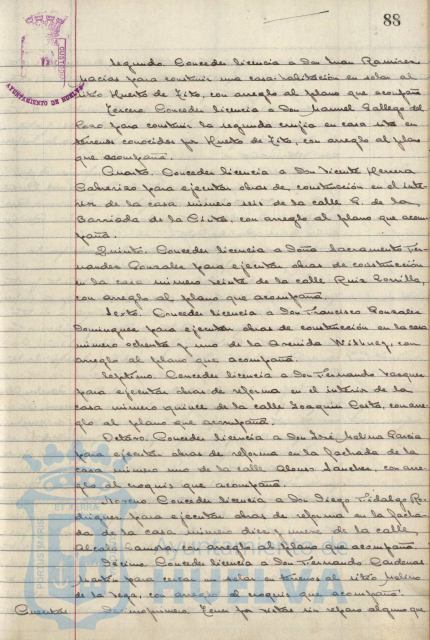 88
AYUNTAMIENTO DE HUELVA
Segundo. Conceder licencia a Don Juan Ramírez
Macías para construir una casa-habitación en solar al
sitio Huerto de Tito, con arreglo al plano que acompaña
Tercero. Conceder licencia a Don Manuel Gallego del
para construir la segunda crujía en casa sita en
terrenos conocidos por Huerto de Tito, con arreglo al plano
que acompaña.
Cuarto. Conceder licencia a Don Vicente Herrera
para ejecutar obras de construcción en el inte-
rior de la casa número seis de la calle de la
Barriada de la Cinta, con arreglo al plano que acom-
paña.
Quinto. Conceder licencia a Doña Sacramento Fer-
nández González para ejecutar obras de construcción
en la casa número veinte de la calle Ruiz Zorrilla,
con arreglo al plano que acompaña.
Sexto. Conceder licencia a Don Francisco González
Domínguez para ejecutar obras de construcción en la casa
número ochenta y uno de la Avenida Withney, con
arreglo al plano que acompaña.
Séptimo. Conceder licencia a Don Fernando Vázquez
para ejecutar obras de reforma en el interior de la
casa número quince de la calle Joaquín Costa, con arre-
glo al plano que acompaña.
Octavo. Conceder licencia a Don José Molina García
para ejecutar obras de reforma en la fachada de la
casa número uno de la calle Alonso Sánchez, con arre-
glo al croquis que acompaña.
Noveno. Conceder licencia a Don Diego Fidalgo Ro-
dríguez para ejecutar obras de reforma en la facha-
da de la casa número diez y nueve de la calle
Alcalá Zamora, con arreglo al plano que acompaña.
Décimo. Conceder licencia a Don Fernando Cárdenas
Martín para cercar un solar en terrenos al sitio Molino
de la Vega, con arreglo al croquis que acompaña.
Cuentas Decimoprimero. Tener por vistas sin reparo alguno que
Ayuntamiento de
HUELVA